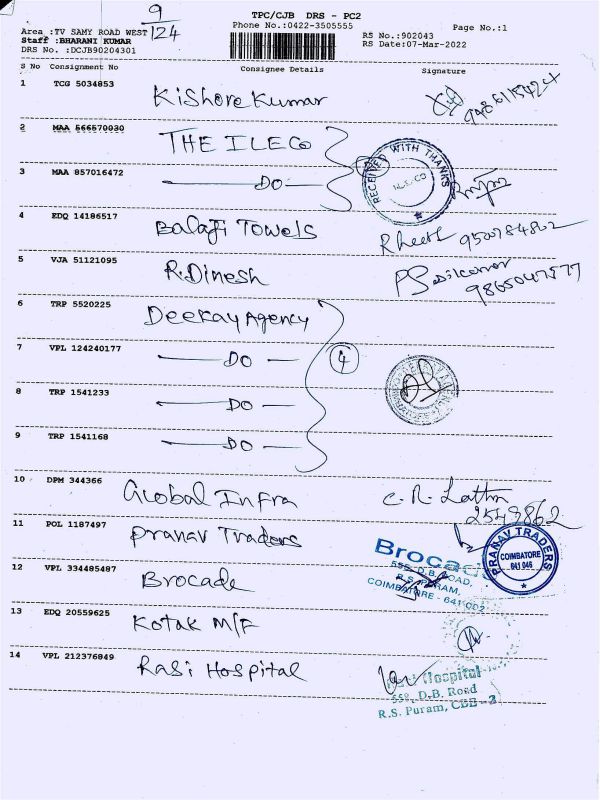 9/124
TPC/CJB DRS - PC2
Phone No.:0422-3505555
Page No.:1
Area :TV SAMY ROAD WEST
Staff :BHARANI KUMAR
DRS No. :DCJB90204301
RS No.:902043
RS Date:07-Mar-2022
S No Consignment No Consignee Details Signature
1 TCG 5034853 Kishore Kumar
2 MAA 566570030 THE ILECo
3 MAA 857016472 DO
RECEIVED WITH THANKS
4 EDQ 14186517 Balaji Towels
5 VJA 51121095 R.Dinesh
9865047577
6 TRP 5520225 Deekay Agency
7 VPL 124240177 DO 4
8 TRP 1541233 DO
9 TRP 1541168 DO
10 DPM 344366 Global Infra
2549862
11 POL 1187497 Pranav Traders
PRANAV TRADERS
COIMBATORE
641 046
12 VPL 334485487 Brocade
D.B. ROAD,
R.S. PURAM,
COIMBATORE - 641 002
13 EDQ 20559625 Kotak M/F
14 VPL 212376849 Rasi Hospital
Hospital
558, D.B. Road
R.S. Puram, CBE - 2